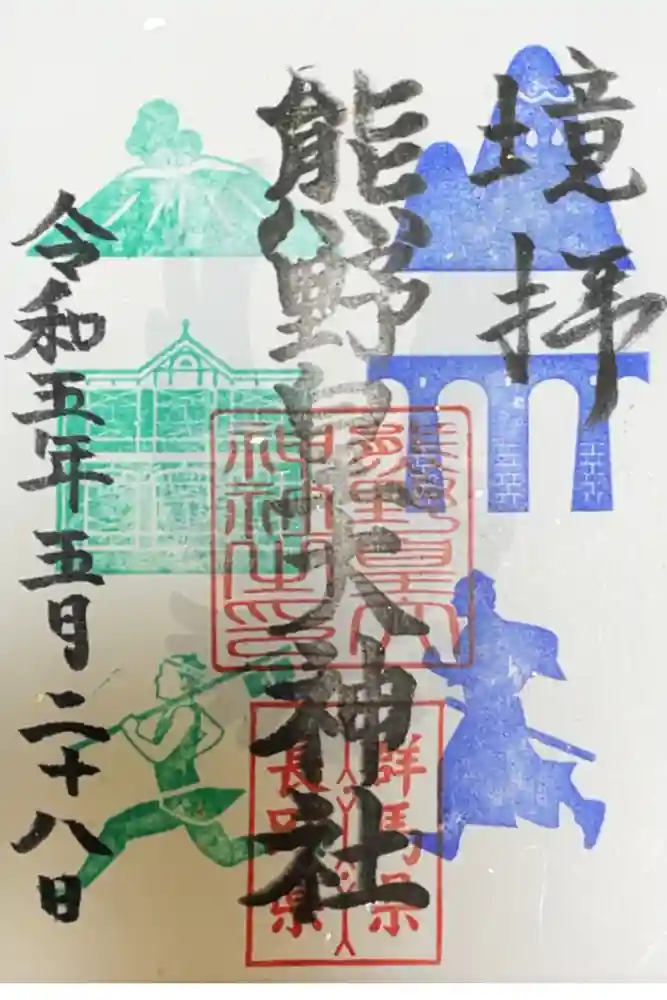 境拝
熊野皇大神社
熊野皇大
神社之印
群馬県
長野県
令和五年五月二十八日